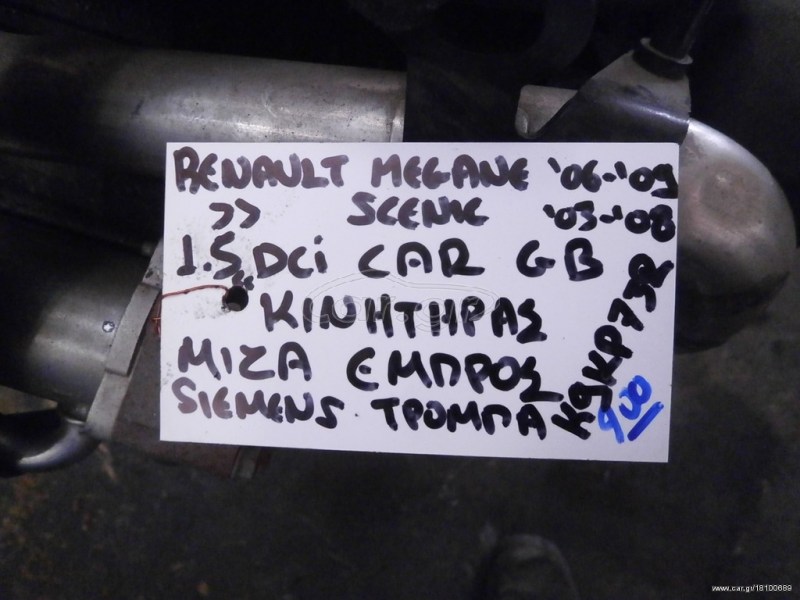 RENAULT MEGANE '06-'09
>> SCENIC '03-'08
1.5 DCi CAR GB
ΚΙΝΗΤΗΡΑΣ
ΜΙΖΑ ΕΜΠΡΟΣ
SIEMENS ΤΡΟΜΠΑ
K9KP732
900
www.car.gr/18100689